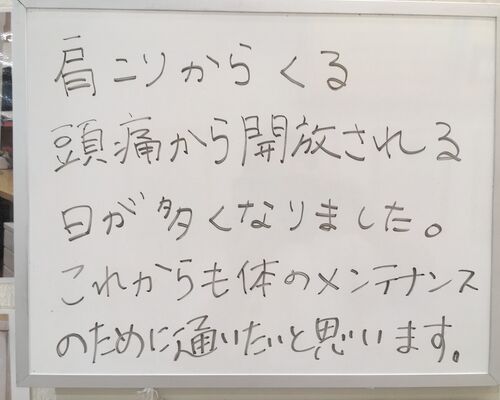 肩こりからくる
頭痛から開放される
日が多くなりました。
これからも体のメンテナンス
のために通いたいと思います。